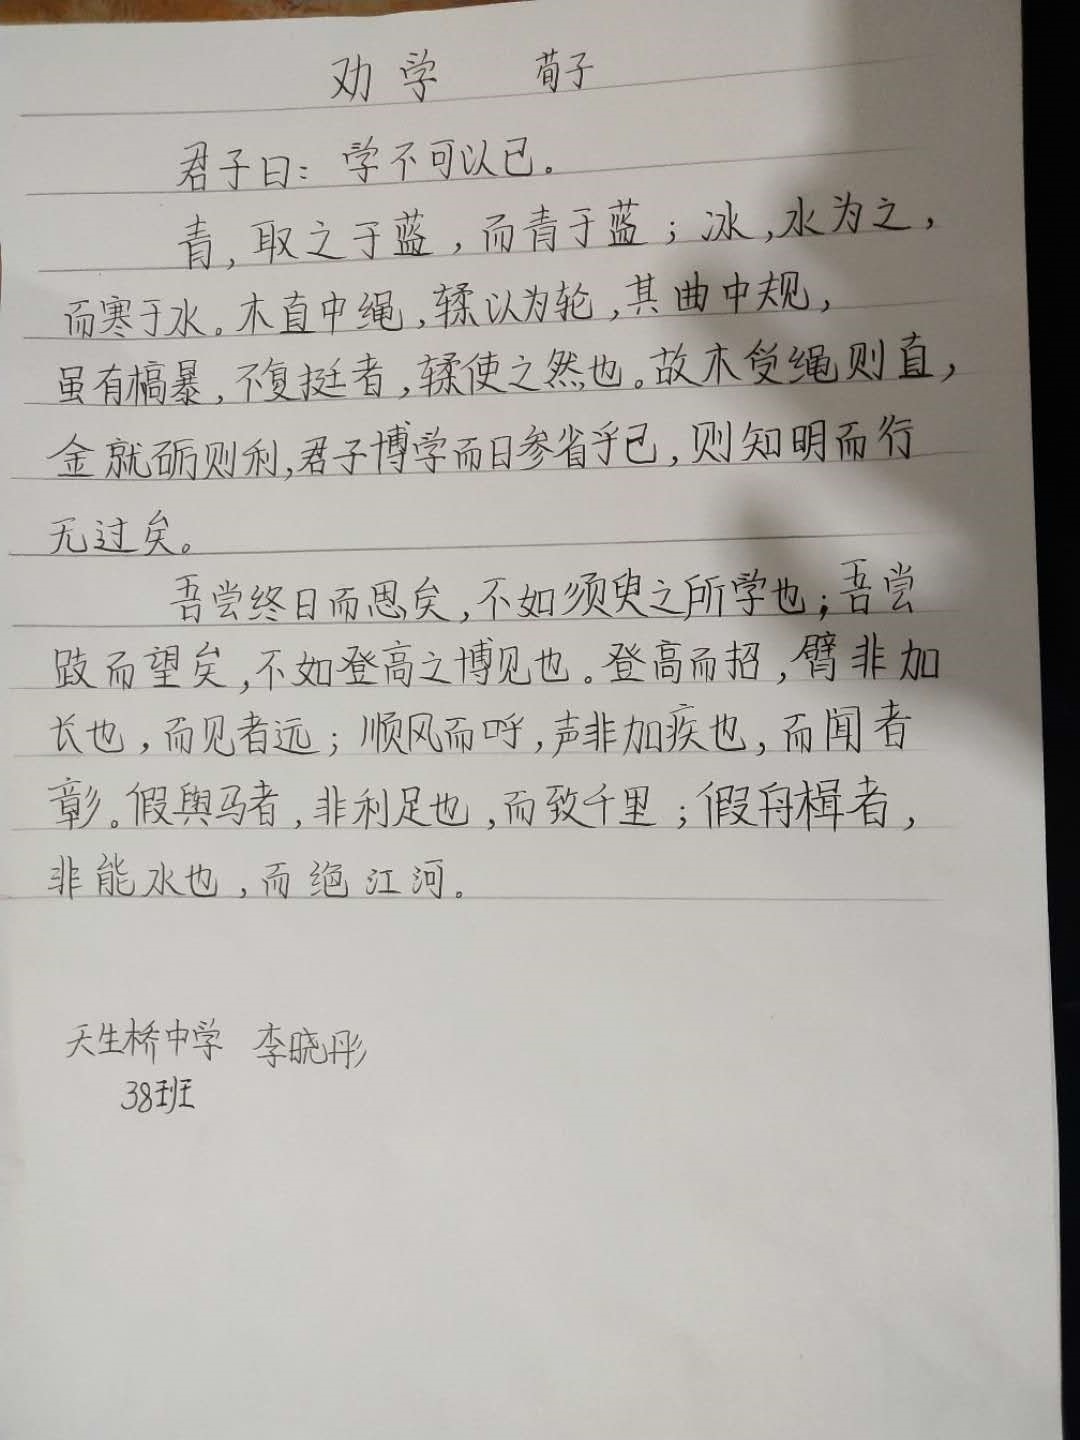 劝学 荀子
君子曰：学不可以已。
青，取之于蓝，而青于蓝；冰，水为之，
而寒于水。木直中绳，輮以为轮，其曲中规，
虽有槁暴，不复挺者，輮使之然也。故木受绳则直，
金就砺则利，君子博学而日参省乎己，则知明而行
无过矣。
吾尝终日而思矣，不如须臾之所学也；吾尝
跂而望矣，不如登高之博见也。登高而招，臂非加
长也，而见者远；顺风而呼，声非加疾也，而闻者
彰。假舆马者，非利足也，而致千里；假舟楫者，
非能水也，而绝江河。
天生桥中学 李晓彤
38班